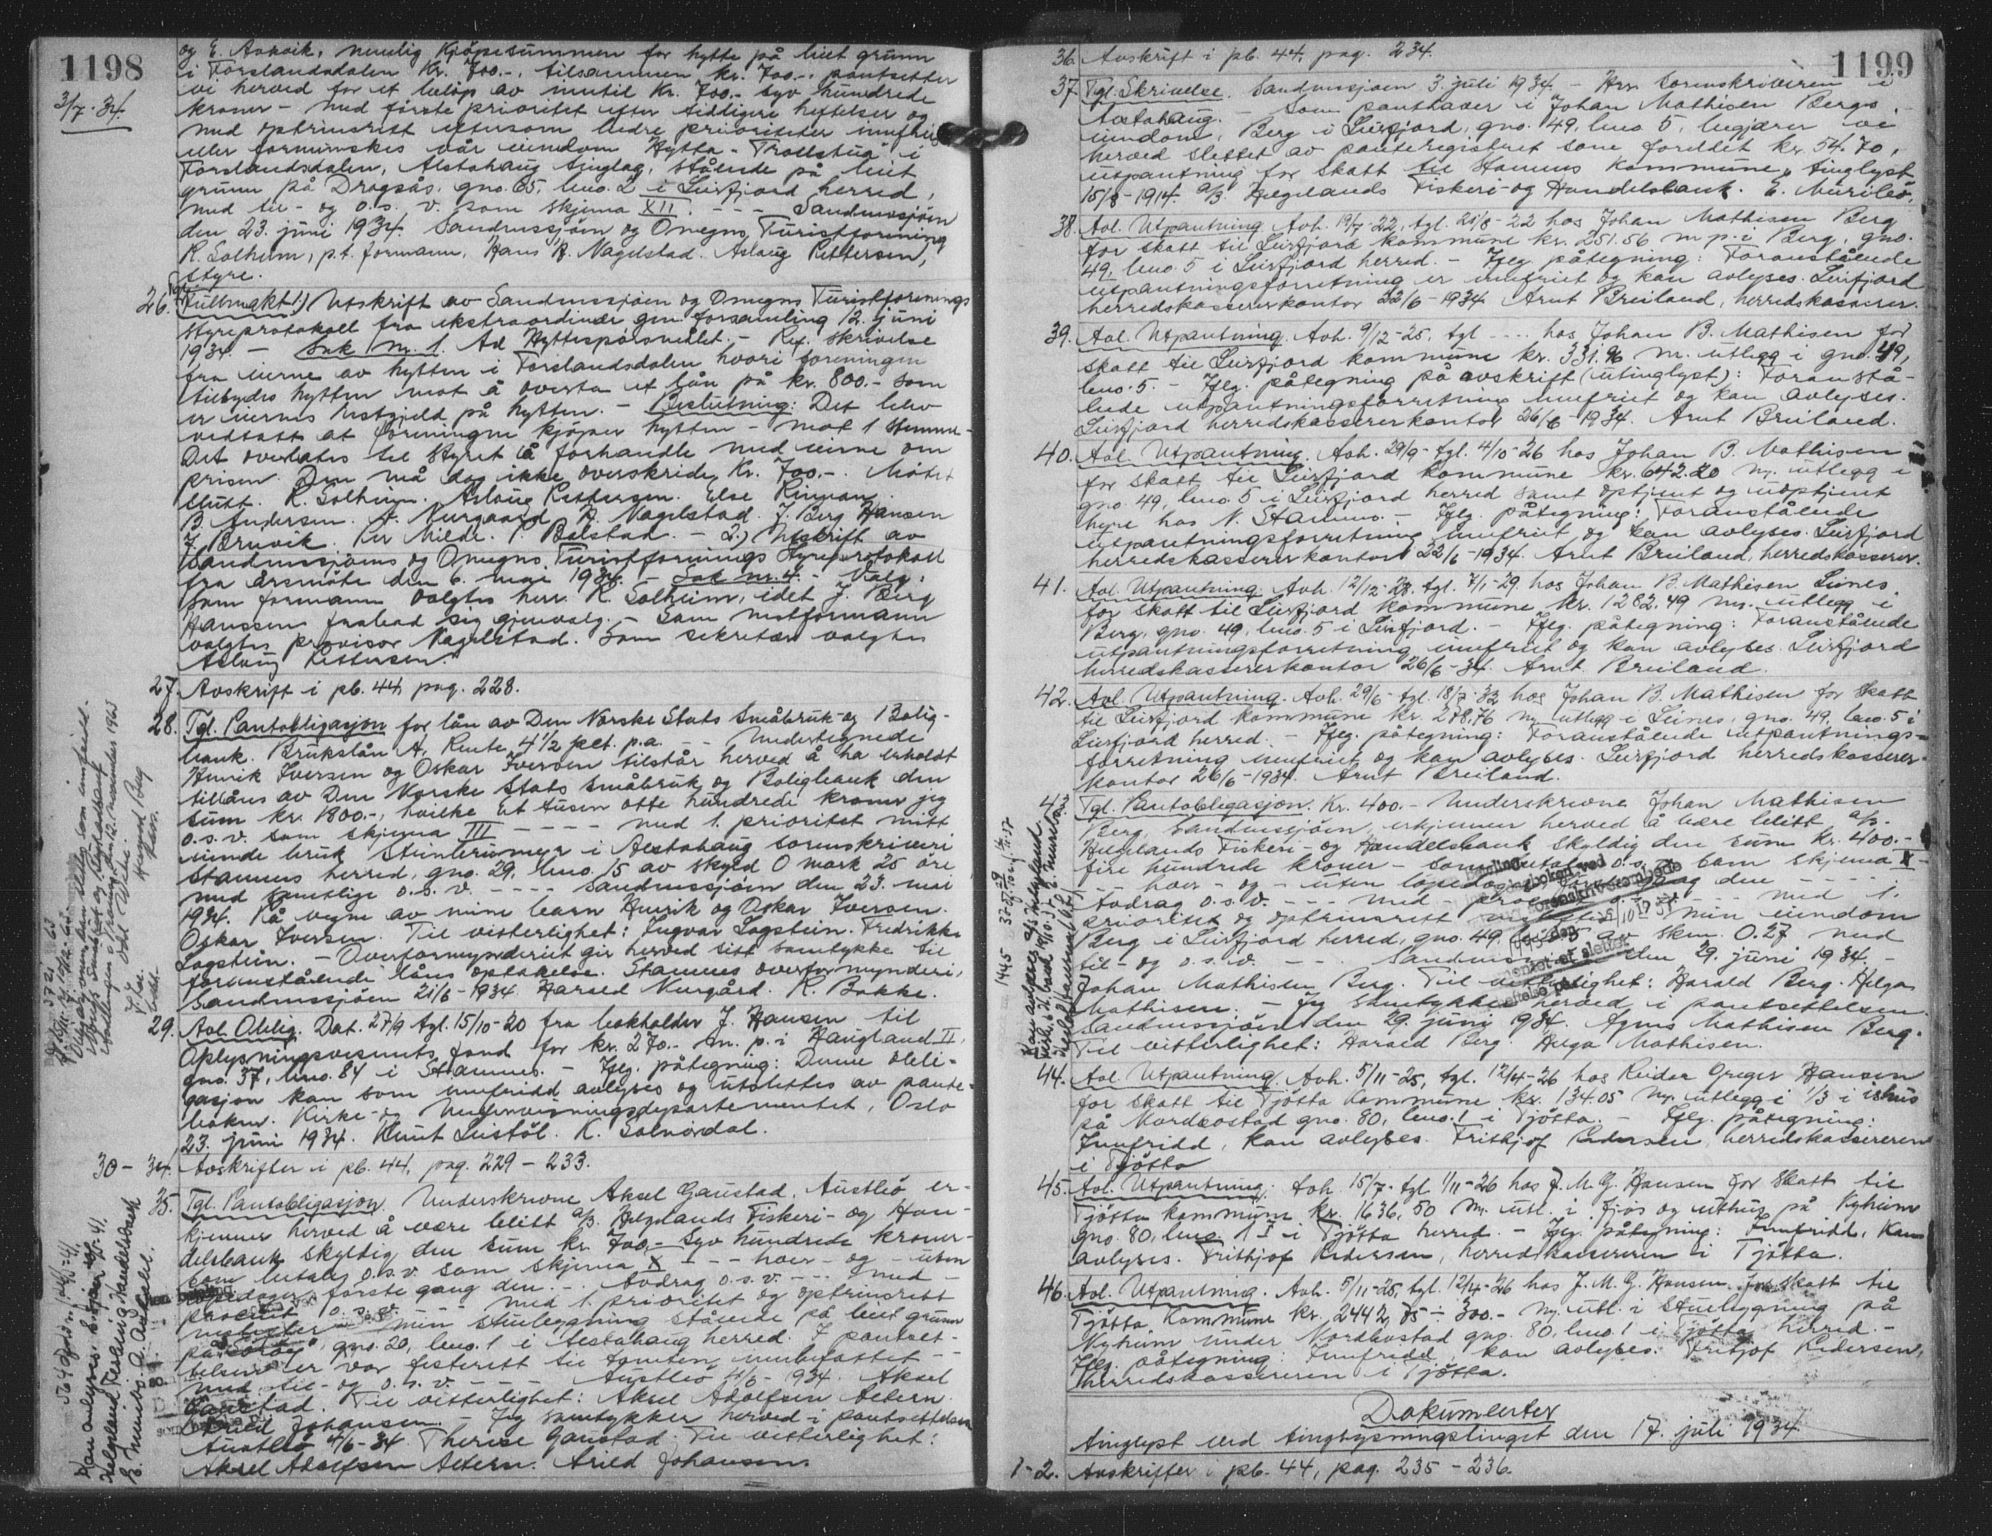 1198
3/7-34.
og E. Aakvik, nemlig kjøpesummen for hytte på leiet grunn
i Forslandsdalen kr. 700.-, tilsammen kr. 700.-, pantsetter
vi herved for et beløp av inntil kr. 700.- syv hundrede
kroner - med første prioritet efter tidligere heftelser og
med optrinsrett eftersom bedre prioriteter innfries
eller forminskes vår eiendom Hytta "Trollstua" i
Forslandsdalen, Alstahaug tinglag, stående på leiet
grunn på Dragsås, gno. 65, bno. 2 i Leirfjord herred,
med til- og o.s.v. som skjema XII. - - - Sandnessjøen
den 23. juni 1934. Sandnessjøen og Omegns Turistforening
R. Solheim, p.t. formann, Hans R. Nagelstad. Aslaug Pettersen,
styre.
26. Tgl. Fullmakt 1.) Utskrift av Sandnessjøen og Omegns Turistforenings
styreprotokoll fra ekstraordinær gen. forsamling 12. juni
1934. - Sak nr. 1. Ad Hyttespørsmålet. - Ref. skrivelse
fra eierne av hytten i Forslandsdalen hvori foreningen
tilbydes hytten mot å overta et lån på kr. 800.- som
er eiernes restgjeld på hytten. - Beslutning: Det blev
vedtatt at foreningen kjøper hytten - mot 1 stemme -
Det overlates til styret å forhandle med eierne om
prisen. Den må dog ikke overskride kr. 700.-. Møtet
slutt. R. Solheim. Aslaug Pettersen. Else Rinnan.
B. Andersen. J. Nurgaard. H. Nagelstad. J. Berg Hansen
J. Bruvik. Per Milde. P. Balstad. - 2.) Utskrift av
Sandnessjøens og Omegns Turistforenings styreprotokoll
fra årsmøte den 6. mai 1934. - Sak nr. 4. - Valg:
Som formann valgtes herr R. Solheim, idet J. Berg
Hanssen frabad sig gjenvalg. - Som nestformann
valgtes provisor Nagelstad. Som sekretær valgtes
Aslaug Pettersen.
27. Avskrift i pb. 44, pag. 228.
28. Tgl. Pantobligasjon for lån av Den Norske Stats Småbruk- og Bolig-
bank. Brukslån A, Rente 4 1/2 pct. p.a. - Undertegnede
Henrik Iversen og Oskar Iversen tilstår herved å ha erholdt
tillåns av Den Norske Stats Småbruk og Boligbank den
sum kr. 1800.-, hvilke et tusen otte hundrede kroner jeg
o.s.v. som skjema III - - - - med 1. prioritet mitt
eiende bruk Steinbrumeier i Alstahaug sorenskriveri
Stamnes herred, gno. 29, bno. 15 av skyld 0 mark 25 øre
med samtlige o.s.v. - - - - Sandnessjøen den 23. mai
1934. På vegne av mine barn Henrik og Oskar Iversen.
Oskar Iversen. Til vitterlighet: Ingvar Logstein. Fredrikke
Logstein. - Overformynderiet gir herved sitt samtykke til
foranstående låns optakelse. Stamnes overformynderi,
Sandnessjøen 21/6-1934. Harsed Nurgård. R. Bakke.
29. Avl. Oblig. Dat. 27/9 tgl. 15/10-20 fra bokholder J. Hansen til
Oplysningsvesenets fond for kr. 270.- m. p. i Haugland II,
gno. 37, bno. 84 i Stamnes. - Iflg. påtegning: Denne obli-
gasjon kan som innfridd avlyses og utslettes av pante-
boken. Kirke- og Undervisningsdepartementet, Oslo
23. juni 1934. Knut Leistøl. K. Solnørdal.
30-34. Avskrifter i pb. 44, pag. 229 - 233.
35. Tgl. Pantobligasjon. Underskrevne Aksel Gaustad, Austbø er-
kjenner herved å være blitt a/s. Helgelands Fiskeri- og Han-
delsbank skyldig den sum kr. 700.- syv hundrede kroner -
som betales o.s.v. som skjema X - - - hver - og - uten
løpedager første gang den. - Avdrag o.s.v. - - - med -
procent o.s.v. - - - med 1. prioritet og optrinsrett
nedefter min stuebygning stående på leiet grunn
på gno. 20, bno. 1 i Alstahaug herred. I pantset-
telsen er vår festerett til tomten innbefattet - -
med til- og o.s.v. - - - Austbø 7/6-1934. Aksel
Gaustad. Til vitterlighet: Aksel Adolfsen Altern.
Arild Johansen. - Jeg samtykker herved i pantsettelsen
Austbø 7/6-34. Therese Gaustad. Til vitterlighet:
Aksel Adolfsen Altern. Arild Johansen
Kan avlyses.
Helgeland Fiskeri og Handelsbank
1199
36. Avskrift i pb. 44, pag. 234.
37. Tgl. Skrivelse. Sandnessjøen 3. juli 1934. - Herr Sorenskriveren i
Alstahaug. - Som panthaver i Johan Mathisen Bergs
eiendom, Berg i Leirfjord, gno. 49, bno. 5, begjærer vi
herved slettet av panteregistret som foreldet kr. 54.70,
utpantning for skatt til Stamnes kommune, tinglyst
15/8-1914. a/s. Helgelands Fiskeri- og Handelsbank. E. Meiløi.
38. Avl. Utpantning Avh. 19/7-22, tgl. 21/8-22 hos Johan Mathisen Berg
for skatt til Leirfjord kommune kr. 251.56 m. p. i Berg, gno.
49, bno. 5 i Leirfjord herred. - Iflg. påtegning: Foranstående
utpantningsforretning er innfriet og kan avlyses. Leirfjord
herredskassererkontor 22/6-1934. Arnt Breiland, herredskasserer.
39. Avl. Utpantning. Avh. 9/12-25, tgl. - - - hos Johan B. Mathisen for
skatt til Leirfjord kommune kr. 331.96 m. utlegg i gno. 49,
bno. 5. - Iflg. påtegning på avskrift (utinglyst): Foranstå-
ende utpantningsforretning innfriet og kan avlyses.
Leirfjord herredskassererkontor 26/6-1934. Arnt Breiland.
40. Avl. Utpantning. Avh. 29/9 - tgl. 4/10-26 hos Johan B. Mathisen
for skatt til Leirfjord kommune kr. 642.20 m. utlegg i
gno. 49, bno. 5 i Leirfjord herred samt optjent og uoptjent
hyre hos N. Stamnes. - Iflg. påtegning: Foranstående
utpantningsforretning innfriet og kan avlyses. Leirfjord
herredskassererkontor 22/6-1934. Arnt Breiland, herredskasserer.
41. Avl. Utpantning Avh. 12/12-28, tgl. 7/1-29 hos Johan B. Mathisen Leines
for skatt til Leirfjord kommune kr. 1282.49 m. utlegg i
Berg, gno. 49, bno. 5 i Leirfjord. - Iflg. påtegning: Foranstående
utpantningsforretning innfriet og kan avlyses. Leirfjord
herredskassererkontor 26/6-34. Arnt Breiland.
42. Avl. Utpantning. Avh. 29/6 - tgl. 18/7-32 hos Johan B. Mathisen for skatt
til Leirfjord kommune kr. 278.76 m. utlegg i Leines, gno. 49, bno. 5 i
Leirfjord herred. - Iflg. påtegning: Foranstående utpantnings-
forretning innfriet og kan avlyses. Leirfjord herredskasserer-
kontor 26/6-1934. Arnt Breiland.
43. Tgl. Pantobligasjon. Kr. 400.- Underskrevne Johan Mathisen
Berg, Sandnessjøen, erkjenner herved å være blitt a/s.
Helgelands Fiskeri- og Handelsbank skyldig den sum kr. 400.-
fire hundrede kroner - som betales o.s.v. som skjema X -
- - hver - og - uten løpedager, første gang den - - - -
Avdrag o.s.v. - - - med - procent o.s.v. - - - med 1.
prioritet og optrinsrett nedefter min eiendom
Berg i Leirfjord herred, gno. 49, bno. 5 av skm. 0.27 med
til- og o.s.v. - - - Sandnessjøen den 29. juni 1934. -
Johan Mathisen Berg. Til vitterlighet: Harald Berg. Helga
Mathisen. - Jeg samtykker herved i pantsettelsen.
Sandnessjøen den 29. juni 1934. Agnes Mathisen Berg.
Til vitterlighet: Harald Berg. Helga Mathisen.
44. Avl. Utpantning. Avh. 5/11-25, tgl. 12/4-26 hos Reidar Greger Hansen
for skatt til Tjøtta kommune kr. 134.05 m. utlegg i 1/3 i ishus
på Nordbostad gno. 80, bno. 1 i Tjøtta. - Iflg. påtegning:
Innfridd, kan avlyses. Frithjof Pedersen, herredskassereren
i Tjøtta
45. Avl. Utpantning. Avh. 15/7 - tgl. 1/11-26 hos J. M. G. Hansen for skatt til
Tjøtta kommune kr. 1636.50 m. utl. i fjøs og uthus på Nyheim
gno. 80, bno. 1 i Tjøtta herred - Iflg. påtegning: Innfridd, kan
avlyses. Frithjof Pedersen, herredskassereren i Tjøtta.
46. Avl. Utpantning. Avh. 5/11-25, tgl. 12/4-26 hos J. M. G. Hansen for skatt til
Tjøtta kommune kr. 2442,85 ÷ 300.- m. utl. i stuebygning på
Nyheim under Nordbostad gno. 80, bno. 1 i Tjøtta herred. -
Iflg. påtegning: Innfridd, kan avlyses. Fritjof Pedersen,
Herredskassereren i Tjøtta.
Dokumenter
tinglyst ved tinglysningstinget den 17. juli 1934.
1-2. Avskrifter i pb. 44, pag. 235 - 236.